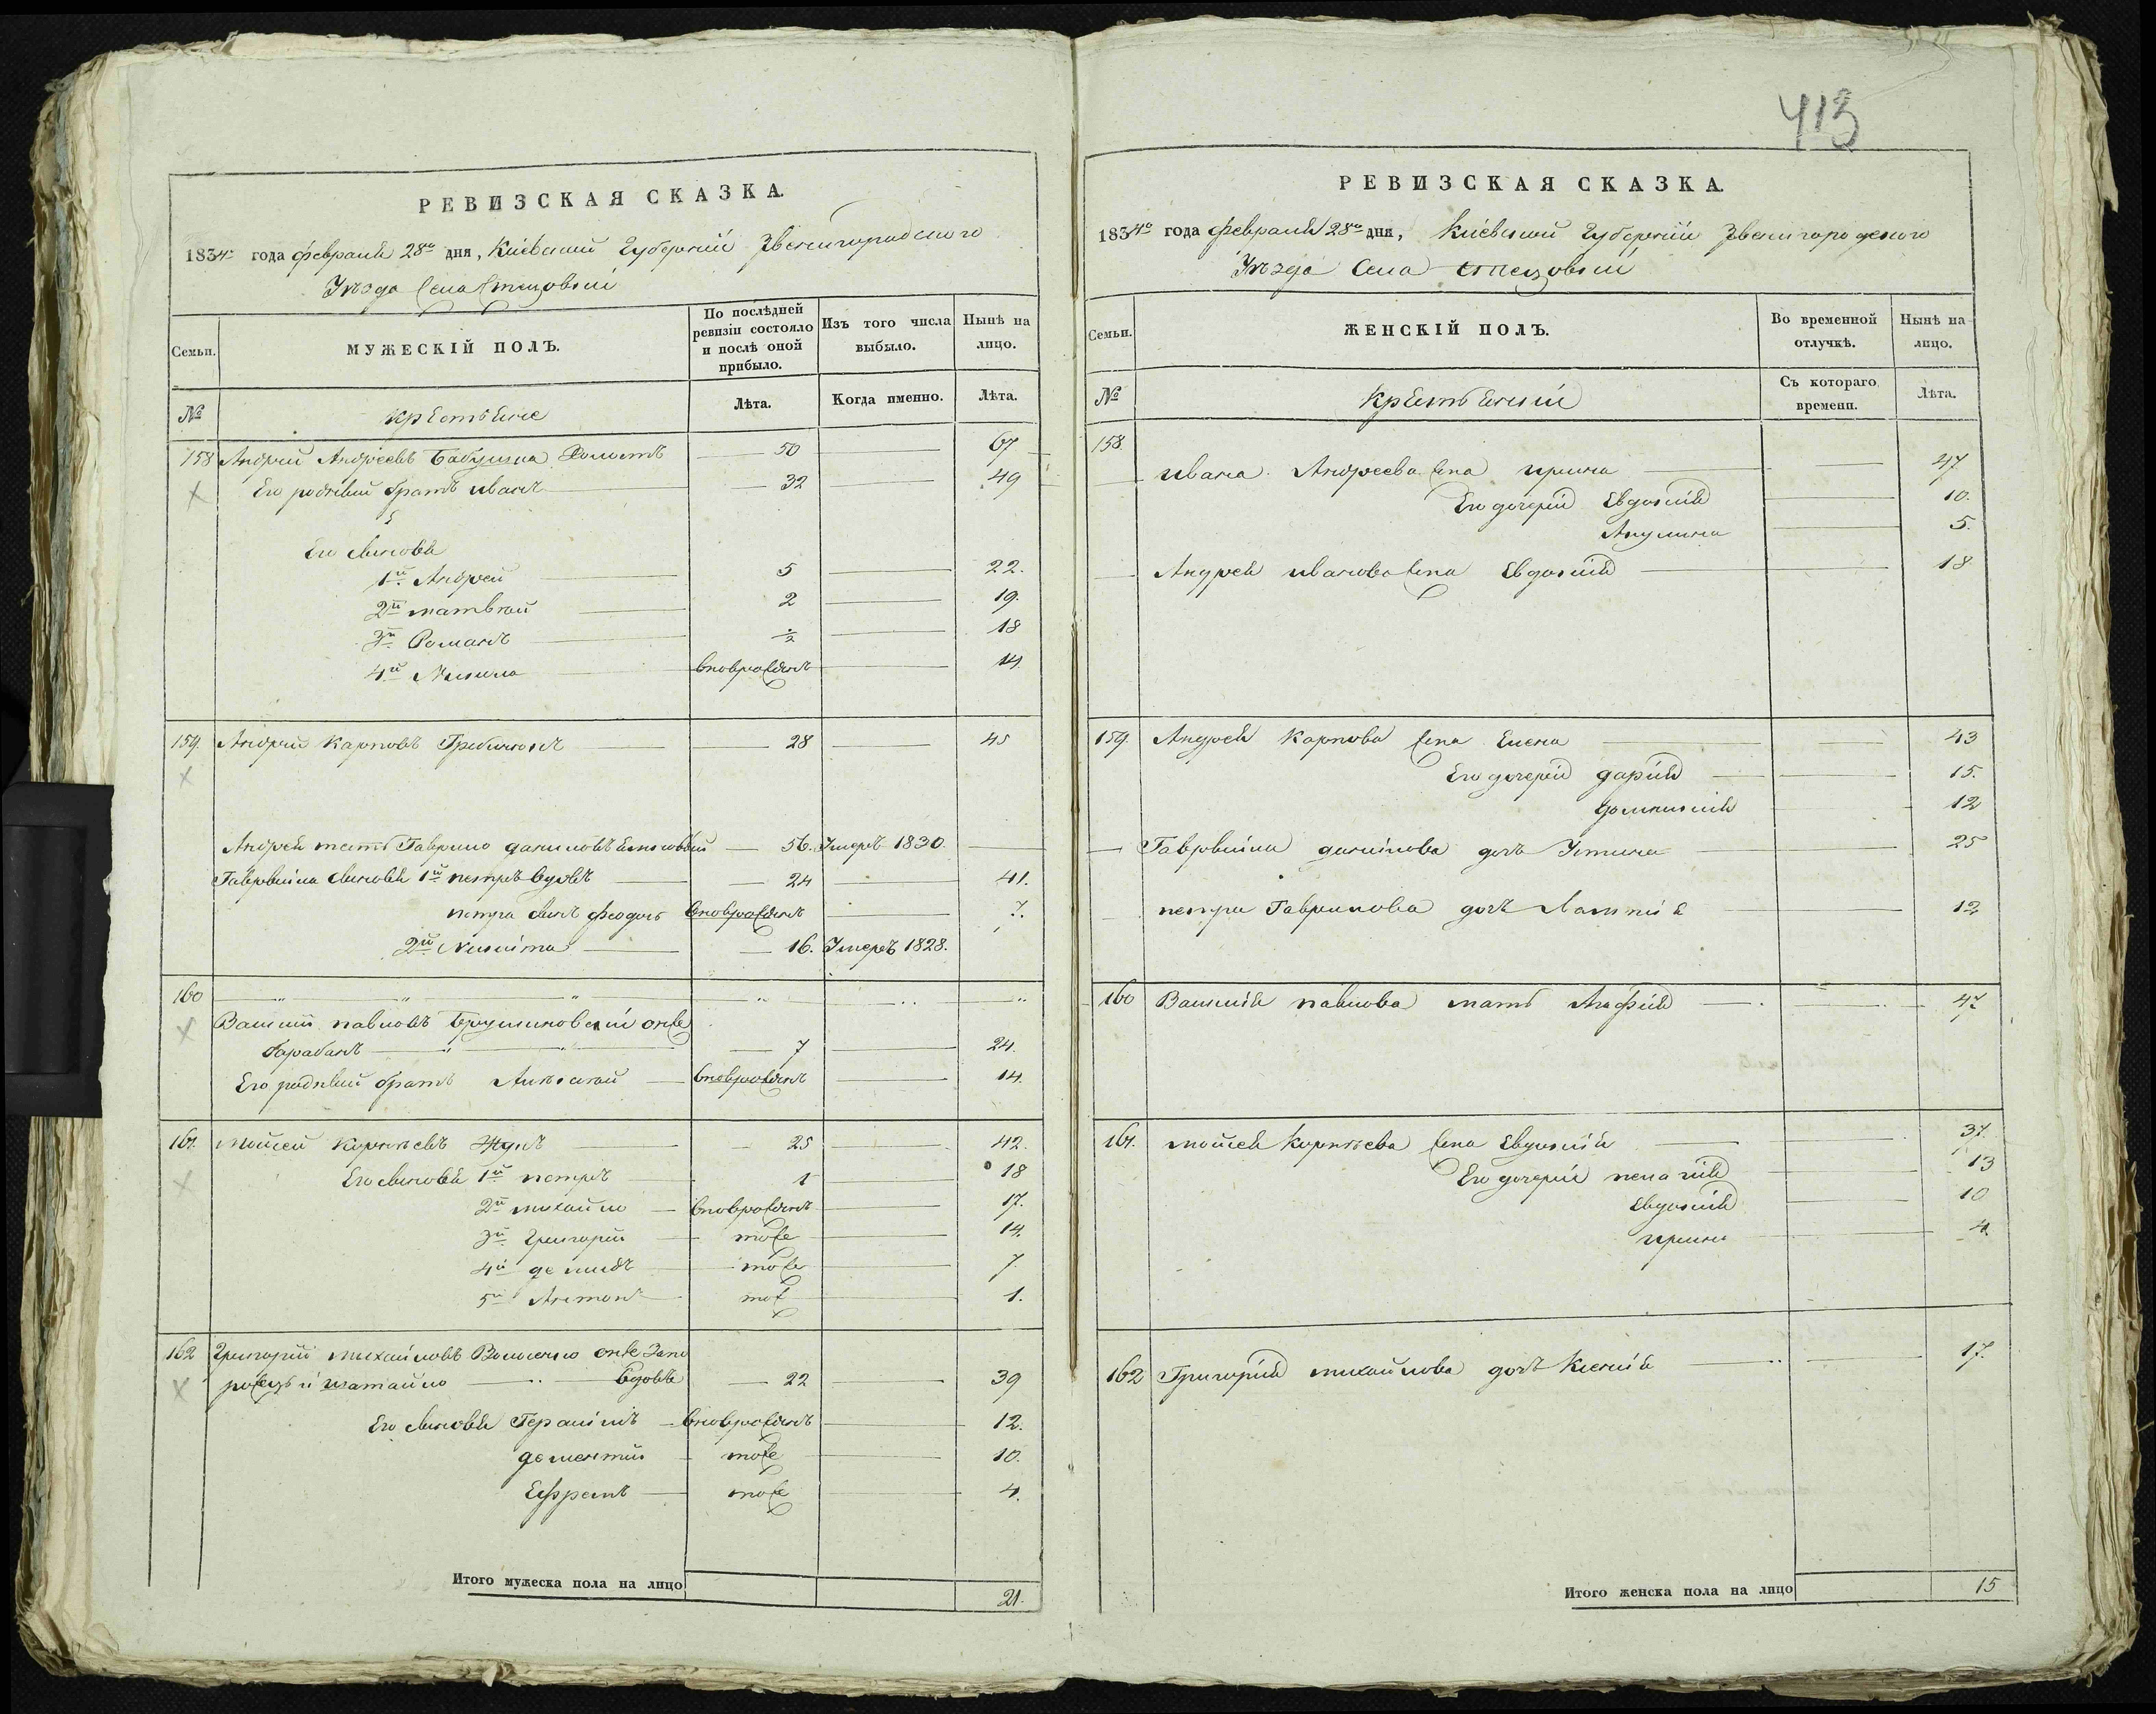 413
РЕВИЗСКАЯ СКАЗКА.
1834го года февраля 28го дня, Кіевской Губерніи Звенигородского
Уѣзда Села Стецовки
Семьи. МУЖЕСКІЙ ПОЛЪ. По послѣдней ревизіи состояло и послѣ оной прибыло. Изъ того числа выбыло. Нынѣ на лицо.
№ Крестьяне Лѣта. Когда именно. Лѣта.
158 Андрей Андреевъ 50 67
Его родный братъ Иванъ 32 49
Его сыновья
1й Андрей 5 22.
2й Матвѣй 2 19.
3й Романъ ½ 18
4й Никита новорожденъ 14.
159. Андрей Карповъ 28 45
Андрея Гаврило Даниловъ 56. Умеръ 1830.
Гаврыила сыновья 1й Петръ вдовъ 24 41.
Петра сынъ Феодоръ новорожденъ 7.
2й Никита 16. Умеръ 1828.
160
Василий Павловъ онже
Барабанъ 7 24.
Его родный братъ Алексѣй новорожденъ 14.
161. Мойсей Корнѣевъ Жукъ 25 42.
Его сыновья 1й Петръ 1 18
2й Михайло новорожденъ 17.
3й Григорий тоже 14.
4й Демидъ тоже 7.
5й Антонъ тож 1.
162 Григорий Михайловъ Волошенко онже Запо
рожецъ и Шатайло вдовъ 22 39
Его сыновья Герасимъ новорожденъ 12.
Дементий тоже 10.
Ефремъ тоже 4.
Итого мужеска пола на лицо 21.
РЕВИЗСКАЯ СКАЗКА.
1834го года февраля 28го дня, Кіевской Губерніи Звенигородского
Уѣзда Села Стецовки
Семьи. ЖЕНСКІЙ ПОЛЪ. Во временной отлучкѣ. Нынѣ на лицо.
№ Крестьянки Съ котораго времени. Лѣта.
158.
Ивана Андреева жена Ирина 47
Его дочери Евдокия 10.
Акулина 5.
Андрея Иванова жена Евдокия 18
159. Андрея Карпова жена Елена 43
Его дочери Дария 15.
Домникия 12
Гаврыила Данилова дочь Устина 25
Петра Гаврилова дочь 12
160 Василия Павлова мать Агафия 47
161. Мойсея Корнѣева жена Евдокия 37.
Его дочери Пелагия 13
Евдокия 10
Ирина 4.
162 Григория Михайлова дочь Ксения 17.
Итого женска пола на лицо 15